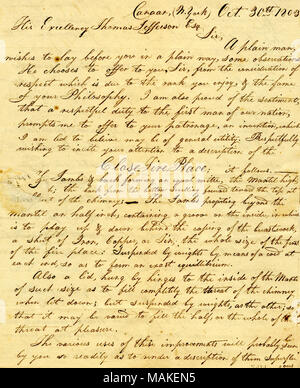 Canaan, (N. York, Oct. 30th 1803
His Excellency Thomas Jefferson Esq.
Sir,
A plain man,
wishes to lay before you in a plain way, some observations
He chooses to offer to you, Sir, from the consideration of
respect which is due to the rank you enjoy, & the fame
of your Philosophy. I am also proud of the sentiment
that a respectful duty to the first man of our nation,
prompts me to offer to your patronage, an invention, which
I am led to believe may be of general utility. Respectfully
wishing to invite your attention to a description of the
Close Fire Place.
of the chimney; — The Jambs projecting beyond the
mantel an half inch, containing a groove on the inside, in which
is to play up & down before the
a Shut of Iron, Copper, or Tin, the whole size of the face
of the fire place. Suspended by weights by means of a cord at
each end, so as to form an exact equilibrium.
Also a Lid, hung by hinges to the inside of the Mantel
of such size as to fill completely the throat of the chimney
when let down; but suspended by weights, as the other, so
that it may be raised to fill the half or the whole of the
throat at pleasure.
The various uses of this improvement will probably be seen
by you so readily as to render a description of them superflu-
alamy
Image ID: MAKEN5
www.alamy.com